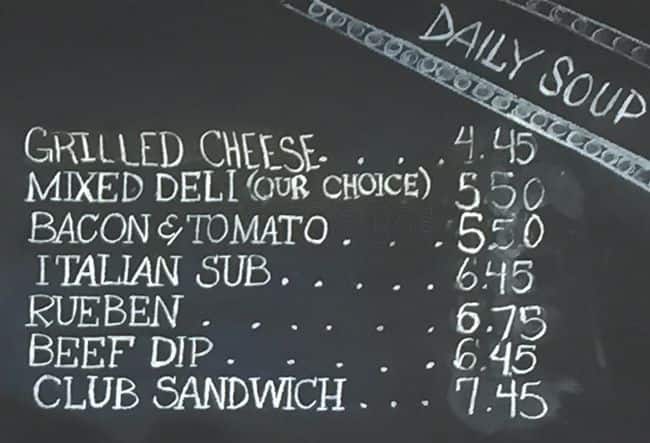 DAILY SOUP
GRILLED CHEESE. . . . . 4.45
MIXED DELI (OUR CHOICE) 5.50
BACON & TOMATO . . . 5.50
ITALIAN SUB . . . . . 6.45
RUEBEN . . . . . . 6.75
BEEF DIP . . . . . . 6.45
CLUB SANDWICH . . . 7.45